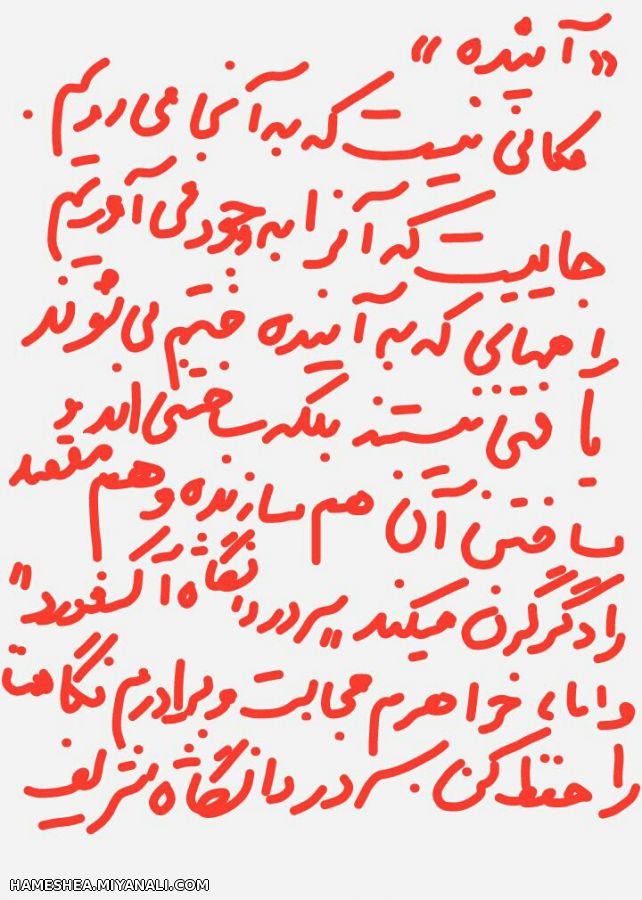 «آینده»
مکانی نیست که به آنجا می رویم .
جاییست که آنرا به وجود می آوریم
راههای که به آینده ختم می شوند
یافتنی نیستند بلکه ساختنی اند و
ساختن آن هم سازنده و هم مقصد
را دگرگون میکند "سر در دانشگاه آکسفورد"
و اما، خواهرم حجابت و برادرم نگاهت
را حفظ کن سر در دانشگاه شریف
HAMESHEA.MIYANALI.COM